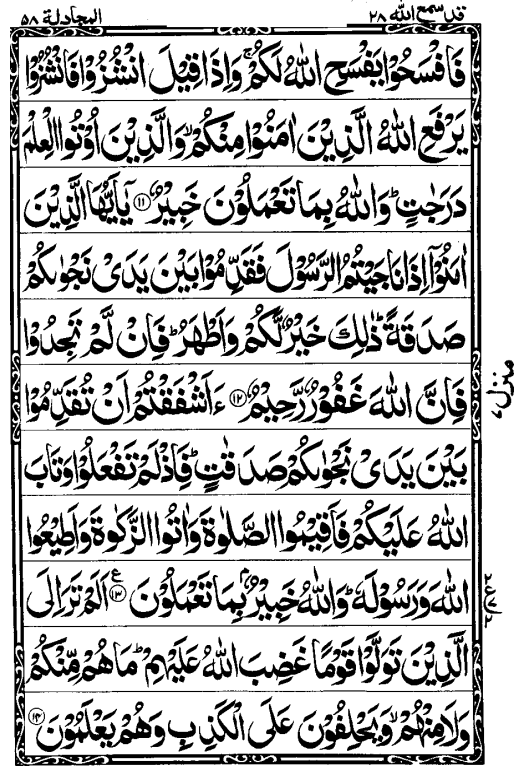 قد سمع الله ٢٨
المجادلة ٥٨
فَافْسَحُوْا يَفْسَحِ اللّٰهُ لَكُمْ ۚ وَاِذَا قِيْلَ انْشُزُوْا فَانْشُزُوْا
يَرْفَعِ اللّٰهُ الَّذِيْنَ اٰمَنُوْا مِنْكُمْ ۙ وَالَّذِيْنَ اُوْتُوا الْعِلْمَ
دَرَجٰتٍ ؕ وَاللّٰهُ بِمَا تَعْمَلُوْنَ خَبِيْرٌ ﴿١١﴾ يٰۤاَيُّهَا الَّذِيْنَ
اٰمَنُوْۤا اِذَا نَاجَيْتُمُ الرَّسُوْلَ فَقَدِّمُوْا بَيْنَ يَدَىْ نَجْوٰىكُمْ
صَدَقَةً ؕ ذٰلِكَ خَيْرٌ لَّكُمْ وَاَطْهَرُ ؕ فَاِنْ لَّمْ تَجِدُوْا
فَاِنَّ اللّٰهَ غَفُوْرٌ رَّحِيْمٌ ﴿١٢﴾ ءَاَشْفَقْتُمْ اَنْ تُقَدِّمُوْا
بَيْنَ يَدَىْ نَجْوٰىكُمْ صَدَقٰتٍ ؕ فَاِذْ لَمْ تَفْعَلُوْا وَتَابَ
اللّٰهُ عَلَيْكُمْ فَاَقِيْمُوا الصَّلٰوةَ وَاٰتُوا الزَّكٰوةَ وَاَطِيْعُوا
اللّٰهَ وَرَسُوْلَهٗ ؕ وَاللّٰهُ خَبِيْرٌۢ بِمَا تَعْمَلُوْنَ ﴿١٣﴾ ع اَلَمْ تَرَ اِلَى
الَّذِيْنَ تَوَلَّوْا قَوْمًا غَضِبَ اللّٰهُ عَلَيْهِمْ ؕ مَا هُمْ مِّنْكُمْ
وَلَا مِنْهُمْ ۙ وَيَحْلِفُوْنَ عَلَى الْكَذِبِ وَهُمْ يَعْلَمُوْنَ ﴿١٤﴾
منزل ٧